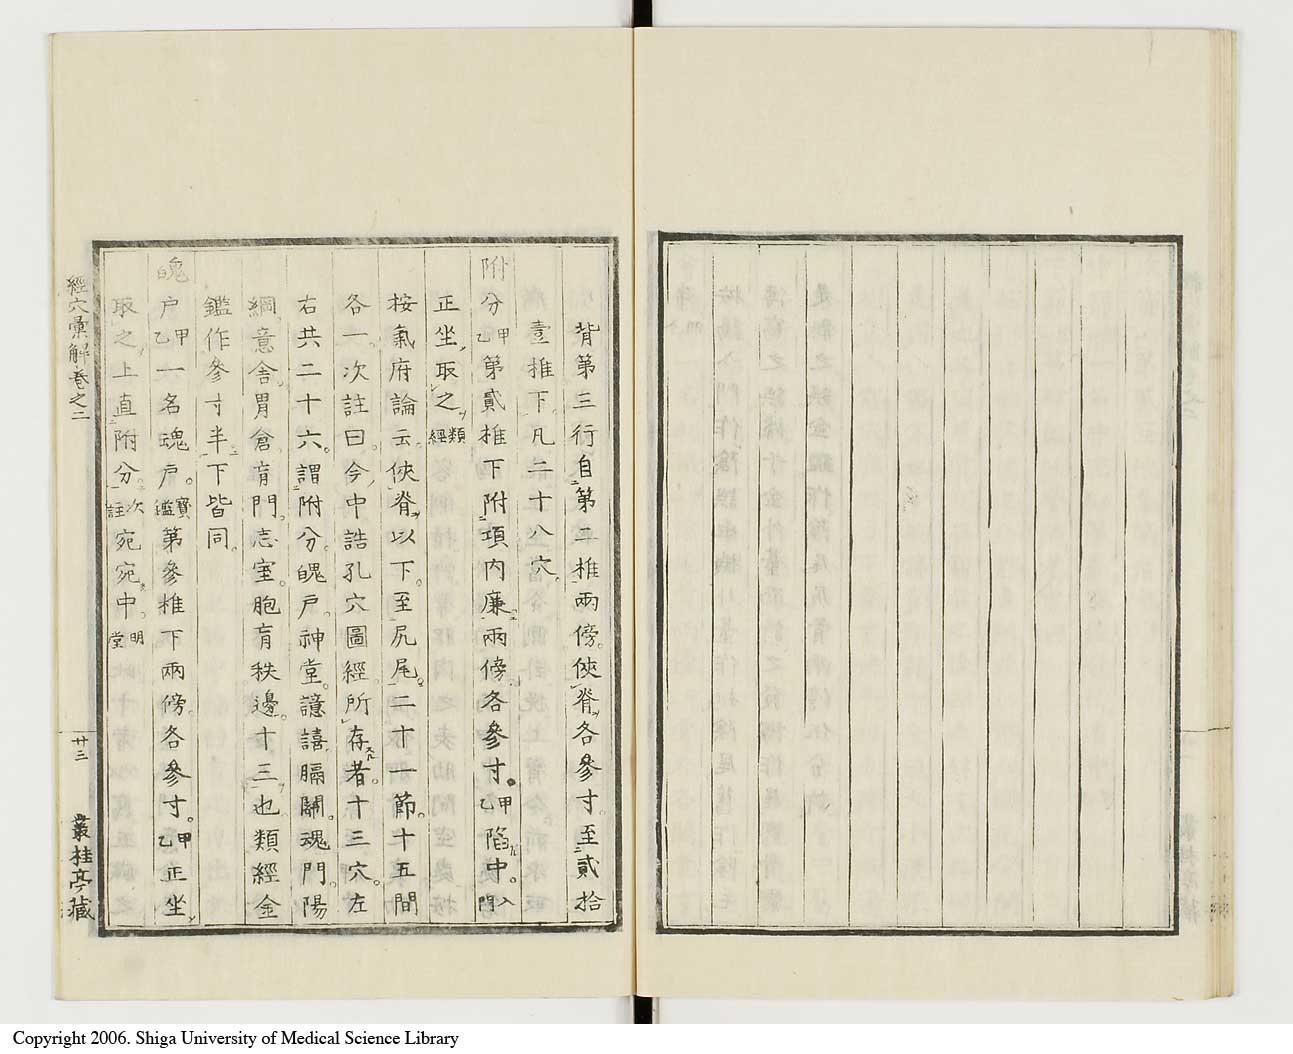 背第三行自第二椎兩傍俠脊各參寸至貳拾
壹椎下凡二十八穴
附分甲乙第貳椎下附項內廉兩傍各參寸甲乙陷中入門
正坐取之類經
按氣府論云俠脊以下至尻尾二十一節十五間
各一次註曰今中誥孔穴圖經所存者十三穴左
右共二十六謂附分魄戶神堂譩譆膈關魂門陽
綱意舍胃倉肓門志室胞肓秩邊十三也類經金
鑑作參寸半下皆同
魄戶甲乙一名魂戶寶鑑第參椎下兩傍各參寸甲乙正坐
取之上直附分次註宛宛中明堂
經穴彙解卷之二
廿三
叢桂亭藏
Copyright 2006. Shiga University of Medical Science Library